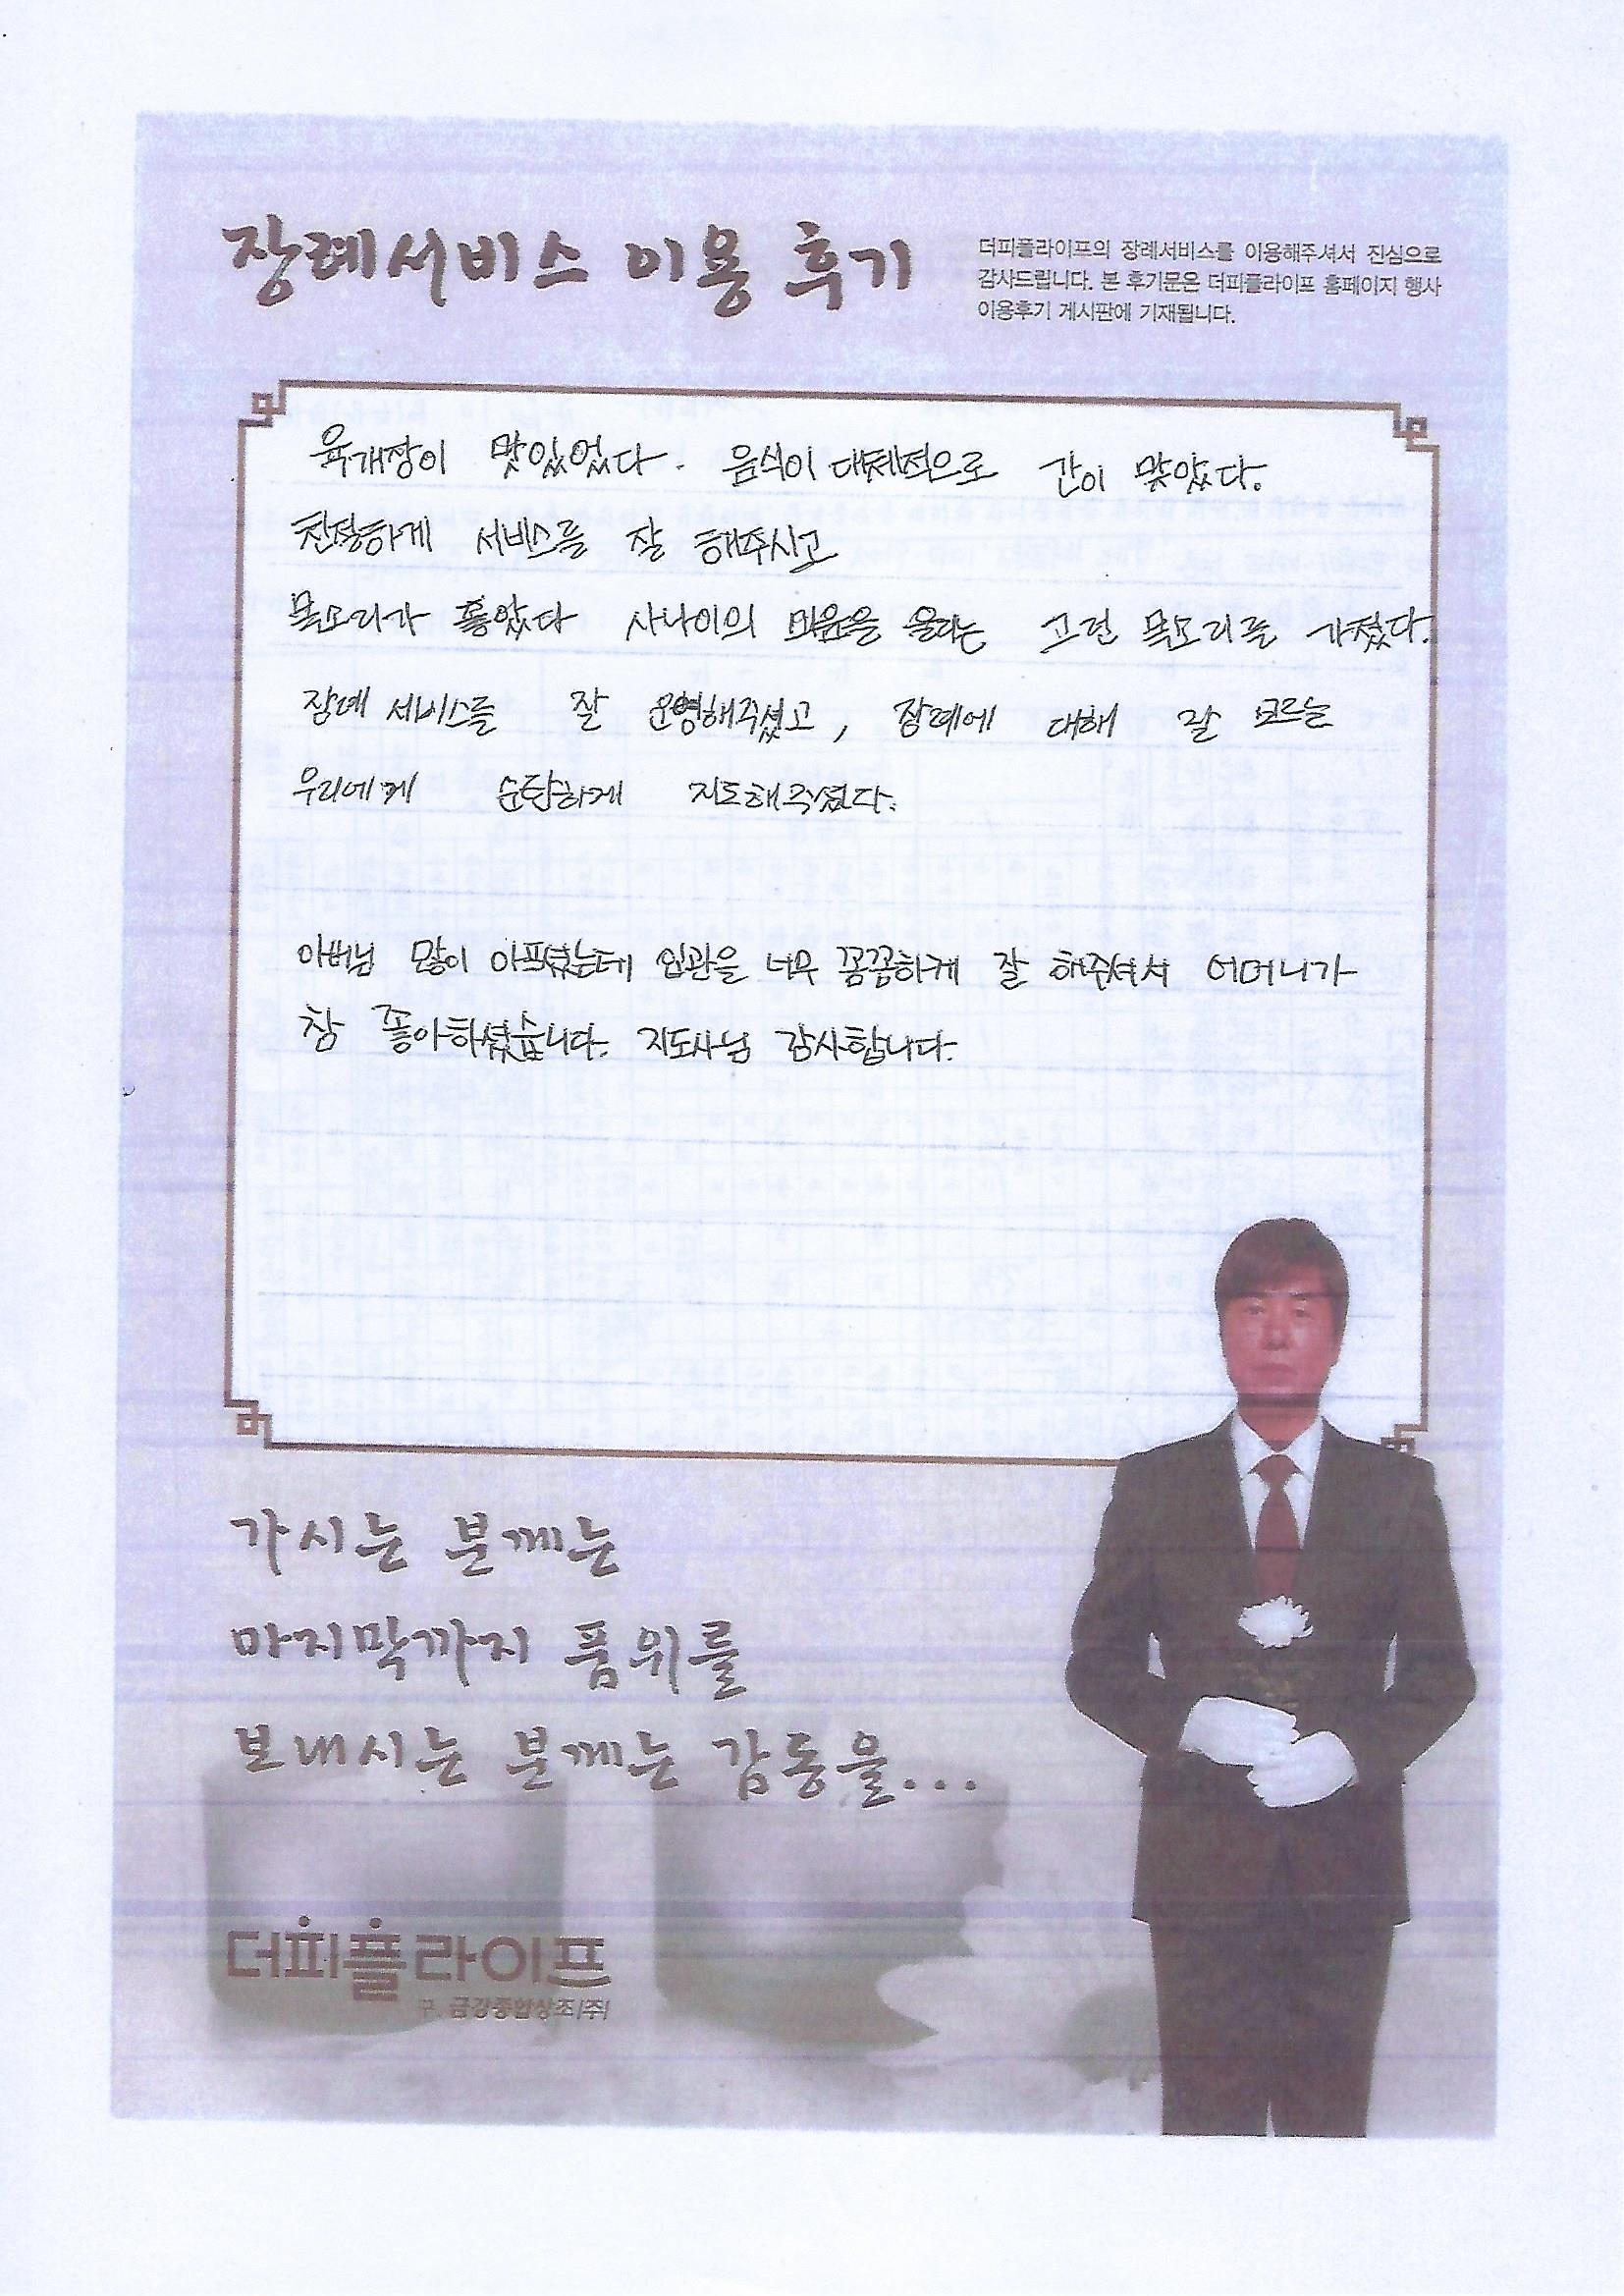 장례서비스 이용 후기
더피플라이프의 장례서비스를 이용해주셔서 진심으로
감사드립니다. 본 후기문은 더피플라이프 홈페이지 행사
이용후기 게시판에 기재됩니다.
육개장이 맛있었다. 음식이 대체적으로 간이 맞았다.
친절하게 서비스를 잘 해주시고
목소리가 좋았다 사나이의 마음을 울리는 그런 목소리를 가졌다.
장례 서비스를 잘 운영해주셨고, 장례에 대해 잘 모르는
우리에게 순탄하게 지도해주셨다.
아버님 많이 아프셨는데 입관을 너무 꼼꼼하게 잘 해주셔서 어머니가
참 좋아하셨습니다. 지도사님 감사합니다.
가시는 분께는
마지막까지 품위를
보내시는 분께는 감동을...
더피플라이프
구. 금강종합상조(주)